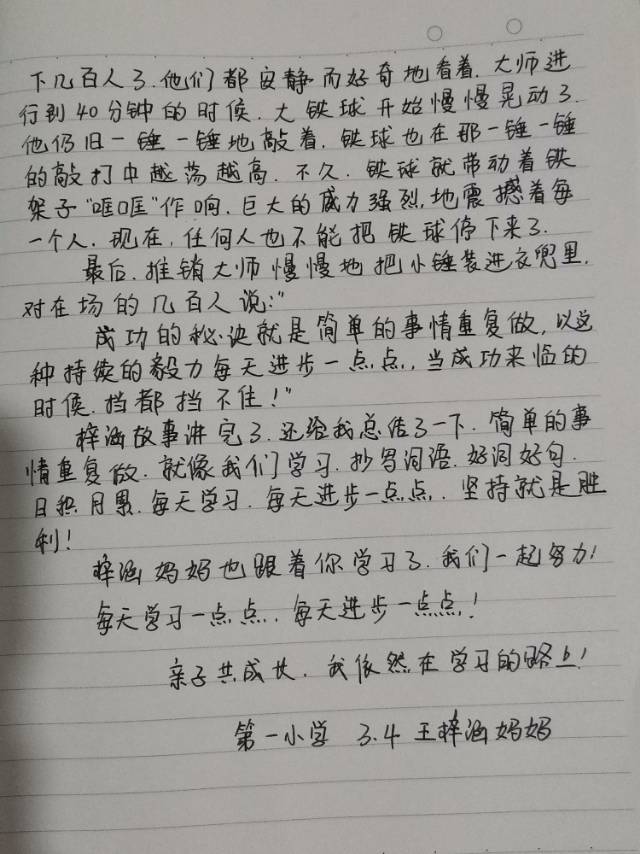 下几百人了.他们都安静而好奇地看着.大师进
行到40分钟的时候.大铁球开始慢慢晃动了.
他仍旧一锤一锤地敲着.铁球也在那一锤一锤
的敲打中越荡越高.不久.铁球就带动着铁
架子“哐哐”作响.巨大的威力强烈.地震撼着每
一个人.现在,任何人也不能把铁球停下来了.
最后.推销大师慢慢地把小锤装进衣兜里.
对在场的几百人说:“
成功的秘诀就是简单的事情重复做,以这
种持续的毅力每天进步一点点,当成功来临的
时候.挡都挡不住!”
梓涵故事讲完了.还给我总结了一下.简单的事
情重复做.就像我们学习.抄写词语.好词好句.
日积月累.每天学习.每天进步一点点.坚持就是胜
利!
梓涵妈妈也跟着你学习了.我们一起努力!
每天学习一点点.每天进步一点点!
亲子共成长.我依然在学习的路上!
第一小学 3.4 王梓涵妈妈